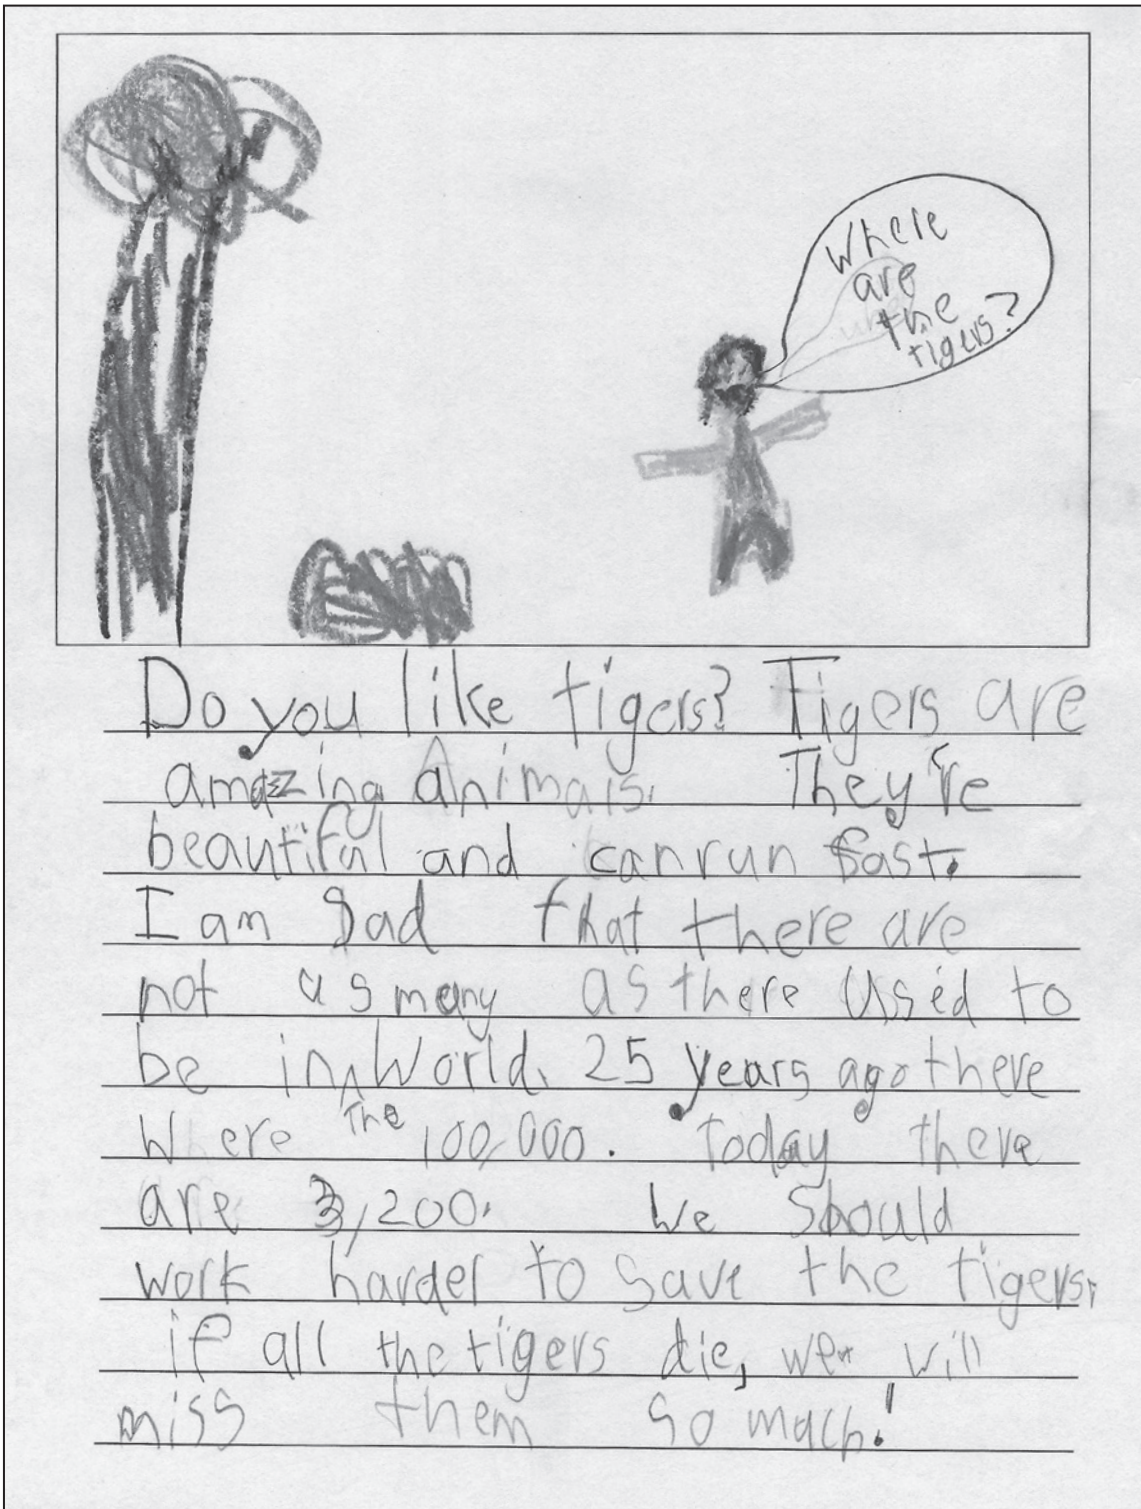 Where
are
the
tigers?
Do you like tigers? Tigers are
amazing animals. They're
beautiful and can run fast.
I am sad that there are
not as many as there used to
be in ^ World. 25 years ago there
The
where 100,000. today there
are 3,200. We should
work harder to save the tigers.
if all the tigers die, we will
miss them so mach!